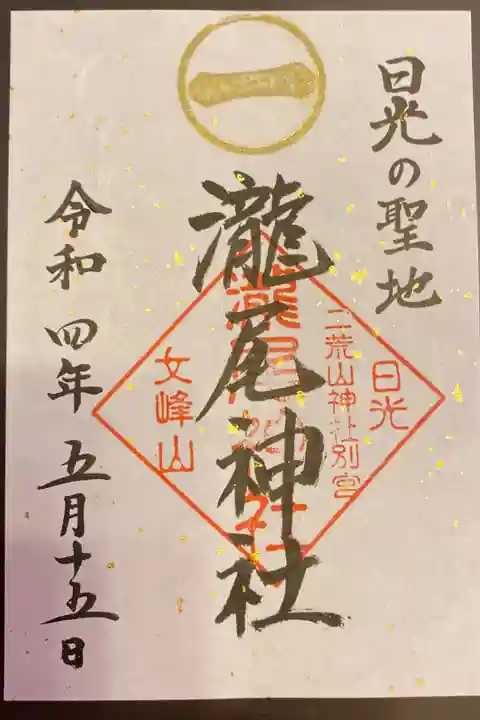 日光の聖地
瀧尾神社
令和四年五月十五日
日光
二荒山神社別宮
瀧尾神社
女峰山